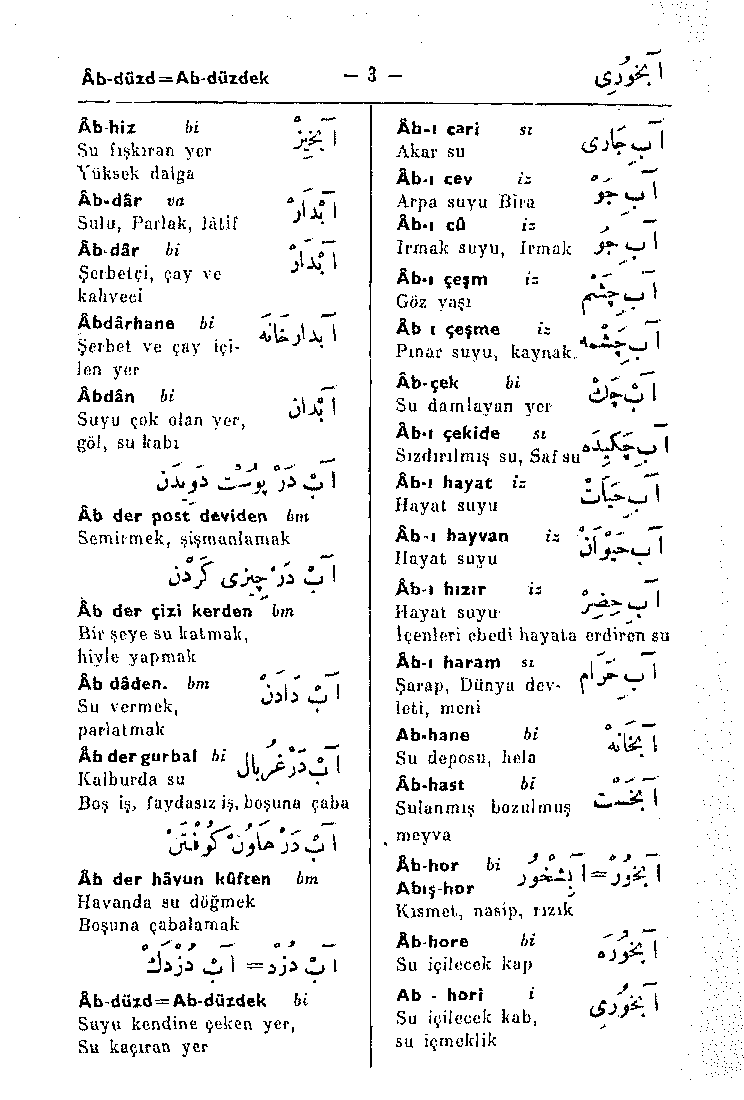 Âb-düzd=Ab-düzdek — 3 — آبخوری
Âb-hiz bi آبخیز
Su fışkıran yer
Yüksek dalga
Âb-dâr va آبدار
Sulu, Parlak, lâtif
Âb-dâr bi آبدار
Şerbetçi, çay ve
kahveci
Âbdârhane bi آبدارخانه
Şerbet ve çay içi-
len yer
Âbdân bi آبدان
Suyu çok olan yer,
göl, su kabı
آب در پوست دویدن
Âb der post deviden bm
Semirmek, şişmanlamak
آب در چیزی کردن
Âb der çizi kerden bm
Bir şeye su katmak,
hiyle yapmak
Âb dâden. bm آب دادن
Su vermek,
parlatmak
Âb der gurbal bi آب در غربال
Kalburda su
Boş iş, faydasız iş, boşuna çaba
آب در هاون کوفتن
Âb der hâvun kûften bm
Havanda su döğmek
Boşuna çabalamak
آب دزد = آب دزدك
Âb-düzd=Ab-düzdek bi
Suyu kendine çeken yer,
Su kaçıran yer
Âb-ı cari sı آب جاری
Akar su
Âb-ı cev iz آب جو
Arpa suyu Bira
Âb-ı cû iz آب جو
Irmak suyu, Irmak
Âb-ı çeşm iz آب چشم
Göz yaşı
Âb ı çeşme iz آب چشمه
Pınar suyu, kaynak.
Âb-çek bi آب چك
Su damlayan yer
Âb-ı çekide sı آب چکیده
Sızdırılmış su, Saf su
Âb-ı hayat iz آب حیات
Hayat suyu
Âb-ı hayvan iz آب حیوان
Hayat suyu
Âb-ı hızır iz آب خضر
Hayat suyu
İçenleri ebedi hayata erdiren su
Âb-ı haram sı آب حرام
Şarap, Dünya dev-
leti, meni
Ab-hane bi آبخانه
Su deposu, hela
Âb-hast bi آبخست
Sulanmış bozulmuş
meyva
Âb-hor bi آبخور = آبشخور
Abış-hor
Kısmet, nasip, rızık
Âb-hore bi آبخوره
Su içilecek kap
Ab - hori i آبخوری
Su içilecek kab,
su içmeklik